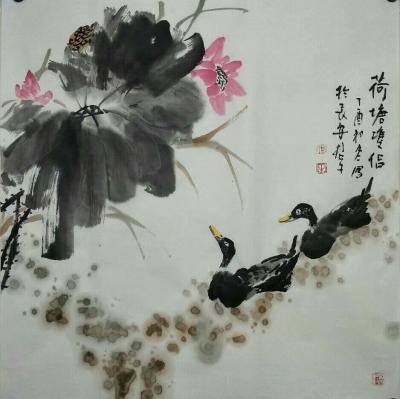 荷塘双侣
丁酉初冬写
於长安